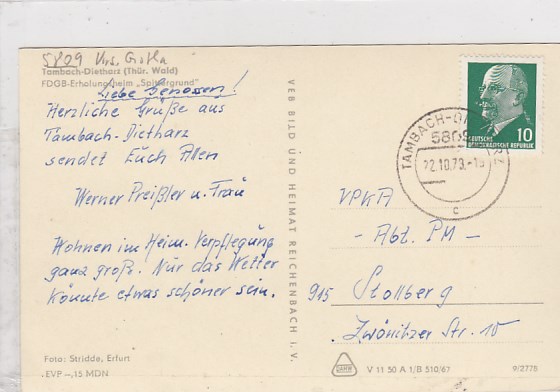 5809 Krs. Gotha
Tambach-Dietharz (Thür. Wald)
FDGB-Erholungsheim „Spittergrund"
Liebe Genossen!
Herzliche Grüße aus
Tambach-Dietharz
sendet Euch Allen
Werner Preißler u. Frau
Wohnen im Heim. Verpflegung
ganz groß. Nur das Wetter
könnte etwas schöner sein.
Foto: Stridde, Erfurt
EVP –,15 MDN
VEB BILD UND HEIMAT REICHENBACH I. V.
10
DEUTSCHE
DEMOKRATISCHE REPUBLIK
TAMBACH-DIETHARZ
5809
22.10.79.-1
c
VPKA
- Abt. PM -
915 Stollberg
Zwönitzer Str. 10
V 11 50 A 1/B 510/67
9/2775